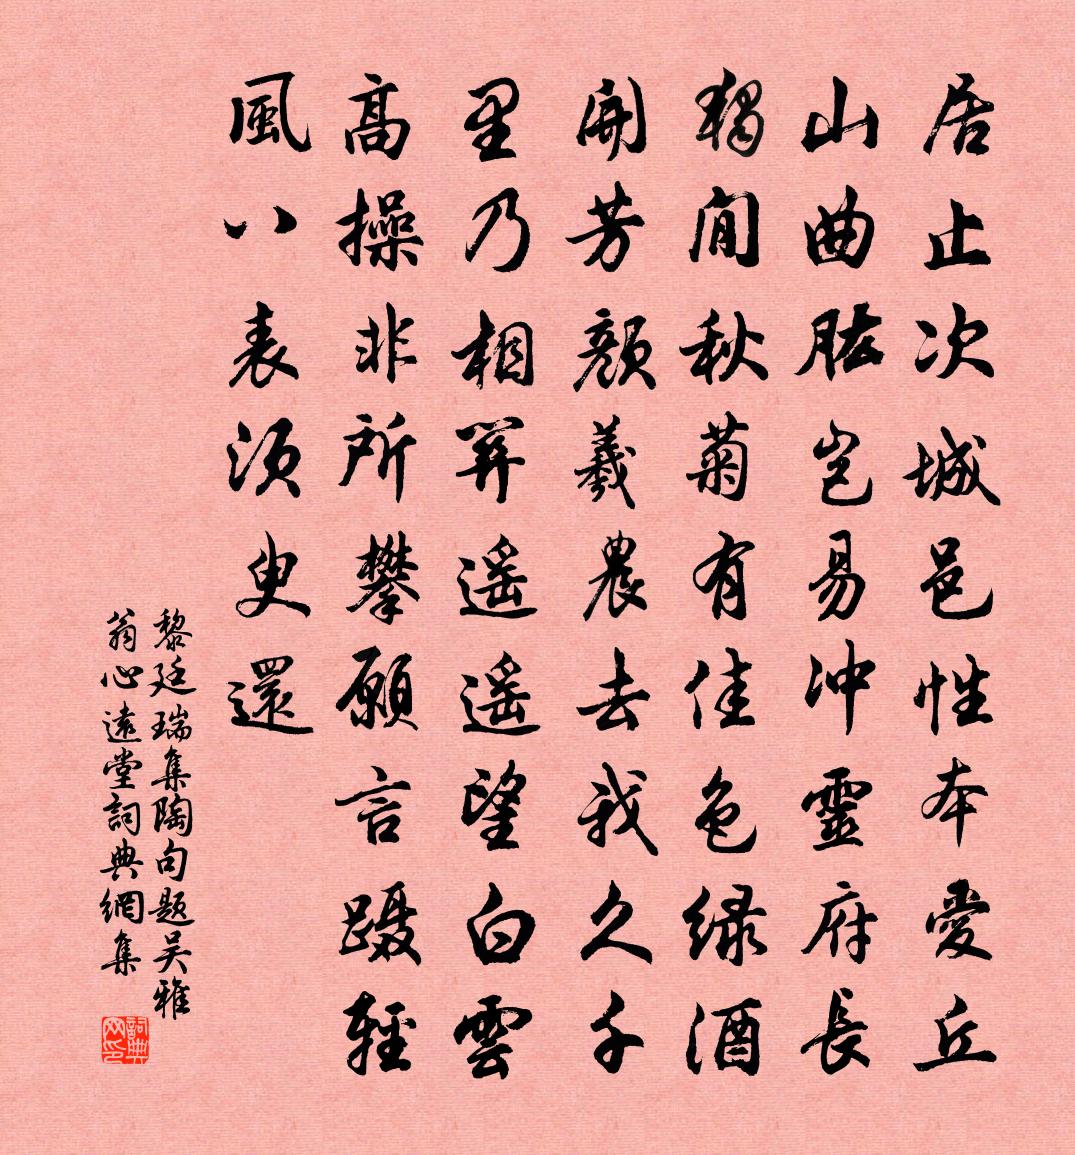 居止次城邑性本愛丘
山曲肱豈易冲靈府長
獨閒秋菊有佳色緑酒
開芳顏羲農去我久千
里乃相關遥遥望白雲
高操非所攀願言躡輕
風八表須臾還
黎廷瑞集陶句題吴雅
翁心遠堂詞典網集
詞典网印